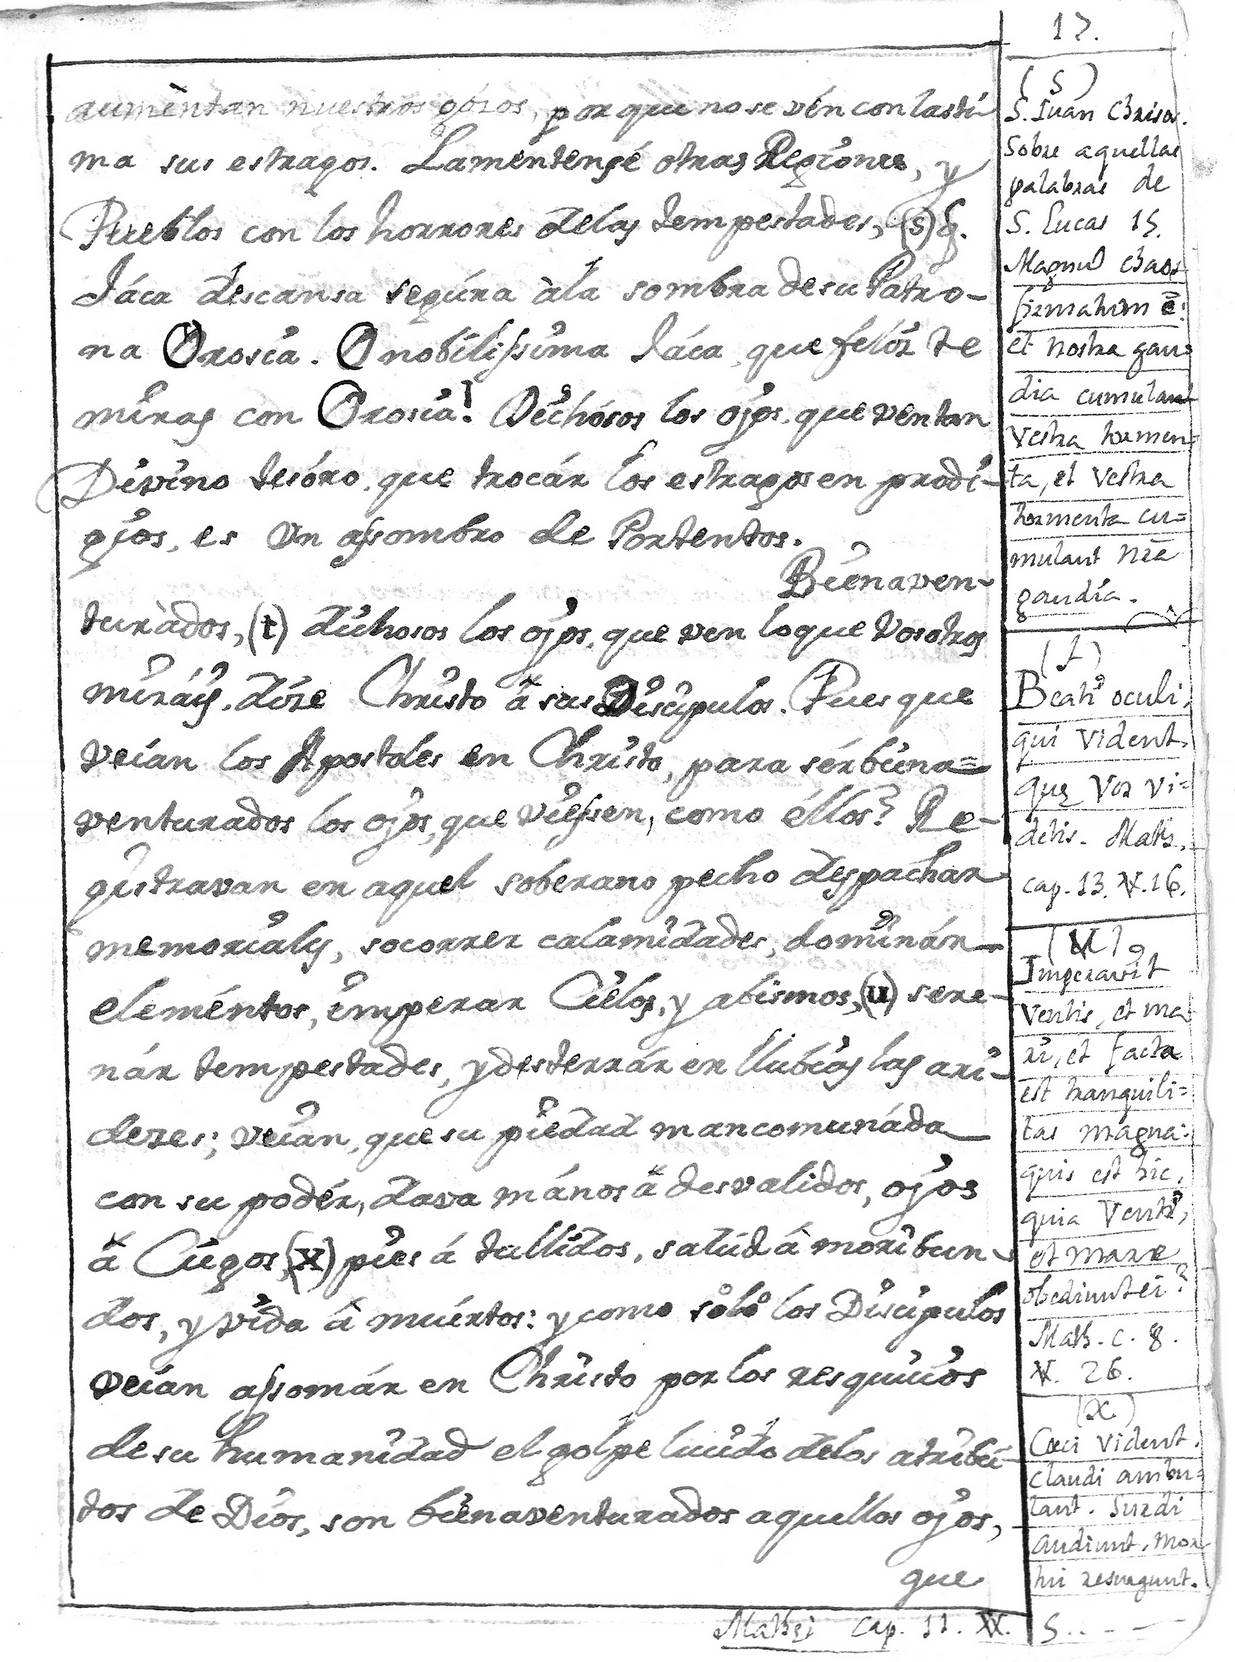 17.
aumèntan nuestros gózos, por que no se vén con lasti
ma sus estragos. Laméntensé otras Regiones, y
Pueblos con los horrores delas tempestades, (s) q.
Iáca descansa segúra àla sombra de su Patro-
na Orosia. O nobilissima Iáca, que felíz te
miras con Orosia! Dichósos los ojos, que ven tan
Divino tesóro, que trocár los estragos en prodi-
gios, es un assombro de Portentos.
Bienaven-
turàdos, (t) dichosos los ojos, que ven loque vosotros
miráis, dize Christo à sus Discipulos. Pues que
veían los Apostoles en Christo, para sér biena=
venturados los ojos, que viessen, como éllos? Re-
gistravan en aquel soberano pecho despachar
memoriales, socorrer calamidades, dominár
eleméntos, imperar Cielos, y abismos, (u) sere-
nár tempestades, y desterrár en llubias las ari-
dezes; veían, que su piedad mancomunáda
con su podér, dava mános à desvalidos, ojos
à Ciegos, (x) pies á tullidos, salúd à moribun-
dos, y vida à muértos: y como sólo los Discipulos
veían assomár en Christo por los resquicios
de su humanidad el golpe lucido delos atribu-
tos de Dios, son bienaventurados aquellos ojos,
que
(S)
S. Iuan Chrisos.
Sobre aquellas
palabras de
S. Lucas 15.
Magnũ chaos
firmatum ē:
et nostra gau=
dia cumulant
vestra tormen=
ta, et vestra
tormenta cu=
mulant nrã
gaudia.
(t)
Beati oculi,
qui vident,
quę vos vi=
detis. Math.
cap. 13. V. 16.
(u)
Imperavit
ventis, et ma
ri, et facta
est tranquili=
tas magna:
quis est hic,
quia Venti,
et mare
obediunt ei?
Math. c. 8.
V. 26.
(x)
Cœci vident.
claudi ambu=
lant. Surdi
audiunt. mor
tui resurgunt.
Mathei cap. 11. V. 5.